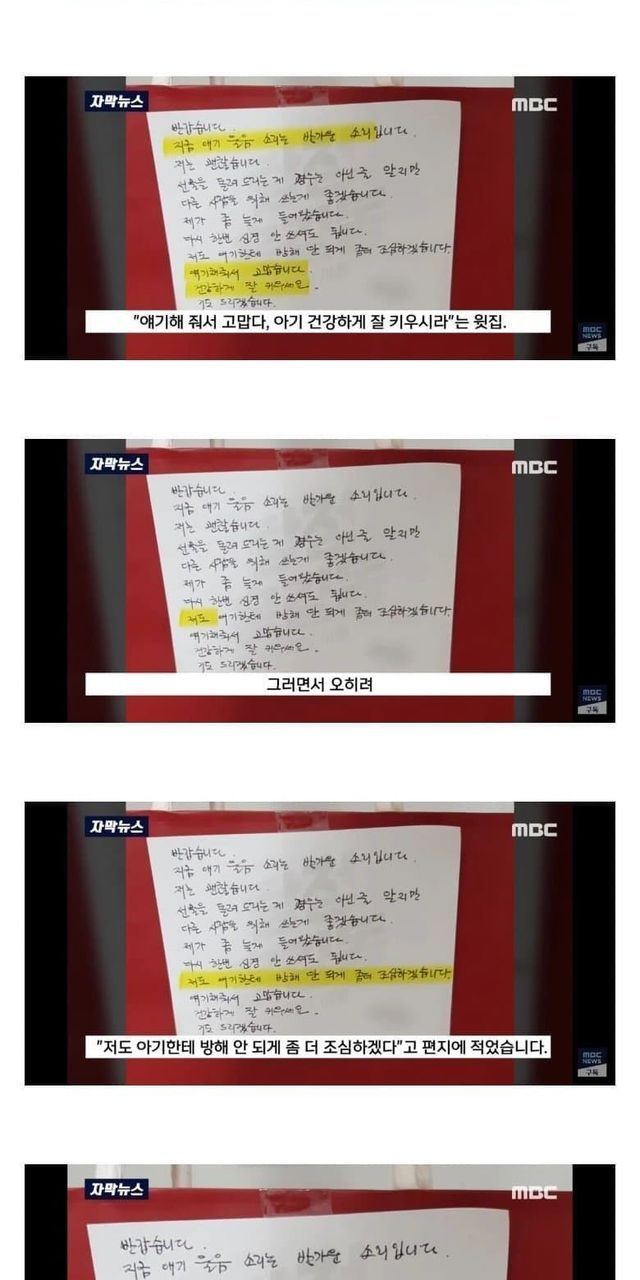 자막뉴스
MBC
반갑습니다.
지금 애기 울음 소리는 반가운 소리입니다.
저는 괜찮습니다.
선물을 돌려 드리는게 경우는 아닌줄 알지만
다른 사람을 위해 쓰는게 좋겠습니다.
제가 좀 늦게 들어왔습니다.
다시 한번 신경 안 쓰셔도 됩니다.
저도 애기한테 방해 안 되게 좀더 조심하겠습니다.
얘기해줘서 고맙습니다.
건강하게 잘 키우세요.
기도 드리겠습니다.
"얘기해 줘서 고맙다, 아기 건강하게 잘 키우시라"는 윗집.
MBC
NEWS
구독
자막뉴스
MBC
반갑습니다.
지금 애기 울음 소리는 반가운 소리입니다.
저는 괜찮습니다.
선물을 돌려 드리는게 경우는 아닌줄 알지만
다른 사람을 위해 쓰는게 좋겠습니다.
제가 좀 늦게 들어왔습니다.
다시 한번 신경 안 쓰셔도 됩니다.
저도 애기한테 방해 안 되게 좀더 조심하겠습니다.
얘기해줘서 고맙습니다.
건강하게 잘 키우세요.
기도 드리겠습니다.
그러면서 오히려
MBC
NEWS
구독
자막뉴스
MBC
반갑습니다.
지금 애기 울음 소리는 반가운 소리입니다.
저는 괜찮습니다.
선물을 돌려 드리는게 경우는 아닌줄 알지만
다른 사람을 위해 쓰는게 좋겠습니다.
제가 좀 늦게 들어왔습니다.
다시 한번 신경 안 쓰셔도 됩니다.
저도 애기한테 방해 안 되게 좀더 조심하겠습니다.
얘기해줘서 고맙습니다.
건강하게 잘 키우세요.
기도 드리겠습니다.
"저도 아기한테 방해 안 되게 좀 더 조심하겠다"고 편지에 적었습니다.
MBC
NEWS
구독
자막뉴스
MBC
반갑습니다.
지금 애기 울음 소리는 반가운 소리입니다.